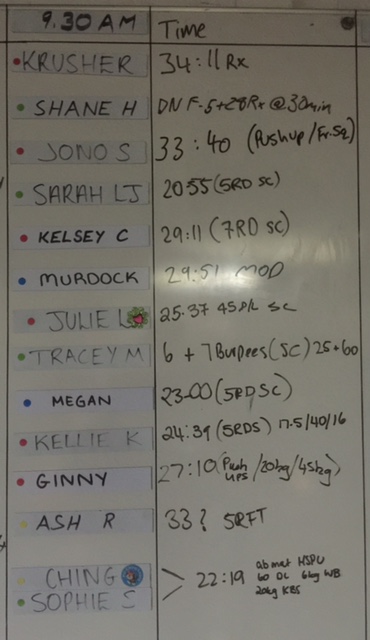 9.30 AM Time
KRUSHER 34:11 Rx
SHANE H DNF-5+28Rx @30min
JONO S 33:40 (Pushup/Fr.Sq)
SARAH LJ 20:55 (5RD SC)
KELSEY C 29:11 (7RD SC)
MURDOCK 29:51 MOD
JULIE L 25.37 45 SC
TRACEY M 6 + 7 Burpees (SC) 25+60
MEGAN 23.00 (5RD SC)
KELLIE K 24:39 (5RDS) 17.5/40/16
GINNY 27:10 (Push ups/20kg/45kg)
ASH R 33? 5RFT
CHING
SOPHIE S
> 22:19
abmat HSPU
60 DL 6kg WB
20kg KBS